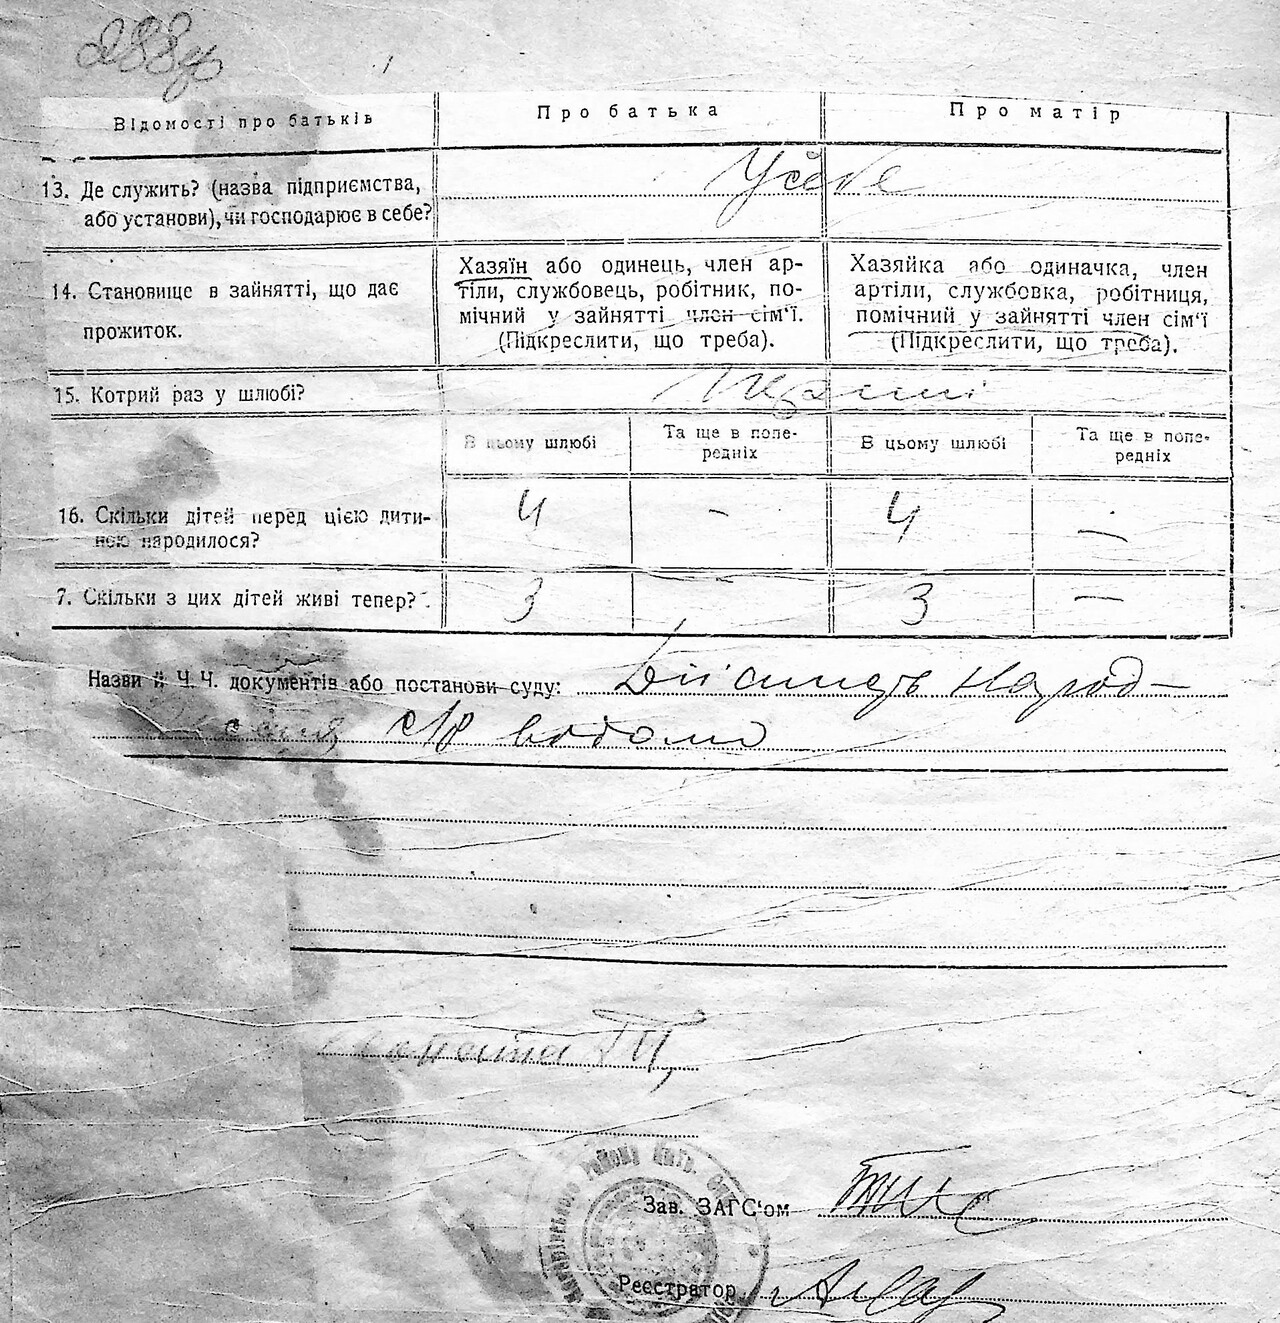 288
Відомості про батьків
Про батька
Про матір
13. Де служить? (назва підприємства,
або установи), чи господарює в себе?
У себе
14. Становище в зайнятті, що дає
прожиток.
Хазяїн або одинець, член ар-
тіли, службовець, робітник, по-
мічний у зайнятті член сім'ї.
(Підкреслити, що треба).
Хазяйка або одиначка, член
артіли, службовка, робітниця,
помічний у зайнятті член сім'ї
(Підкреслити, що треба).
15. Котрий раз у шлюбі?
В цьому шлюбі
Та ще в попе-
редніх
В цьому шлюбі
Та ще в попе-
редніх
16. Скільки дітей перед цією дити-
ною народилося?
4 - 4 —
7. Скільки з цих дітей живі тепер?
3 — 3 —
Назви й Ч. Ч. документів або постанови суду: Дійсність народ-
відомо
Зав. ЗАГС'ом
району
Реєстратор